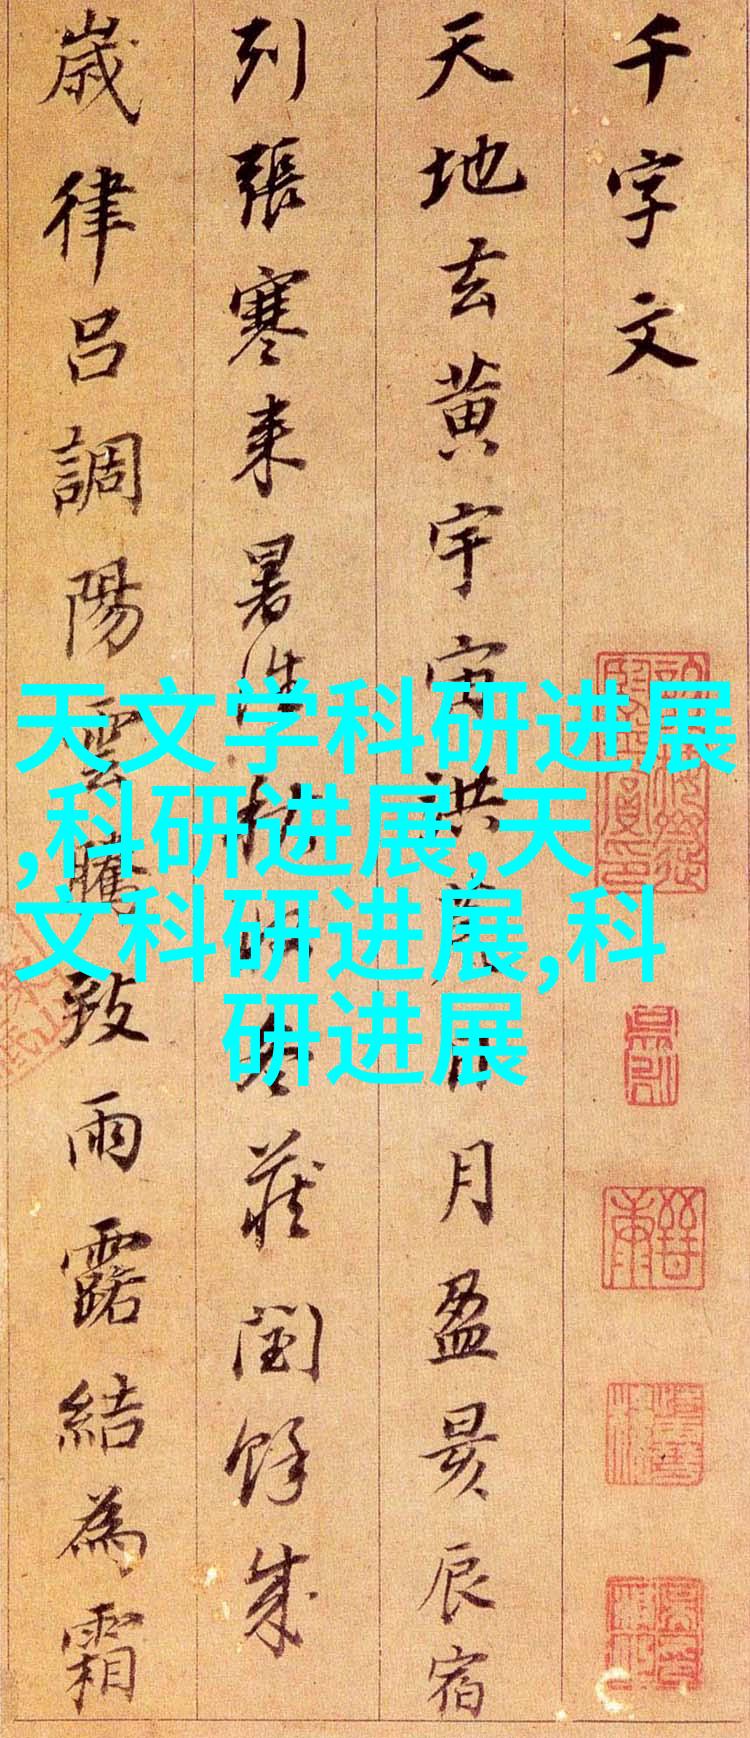 千字文
天地玄黄宇宙洪荒日月盈昃辰宿
列張寒来暑往秋收冬蔵閏餘成
歳律吕調陽雲騰致雨露結為霜
天文学科研进展
,科研进展,天
文科研进展,科
研进展